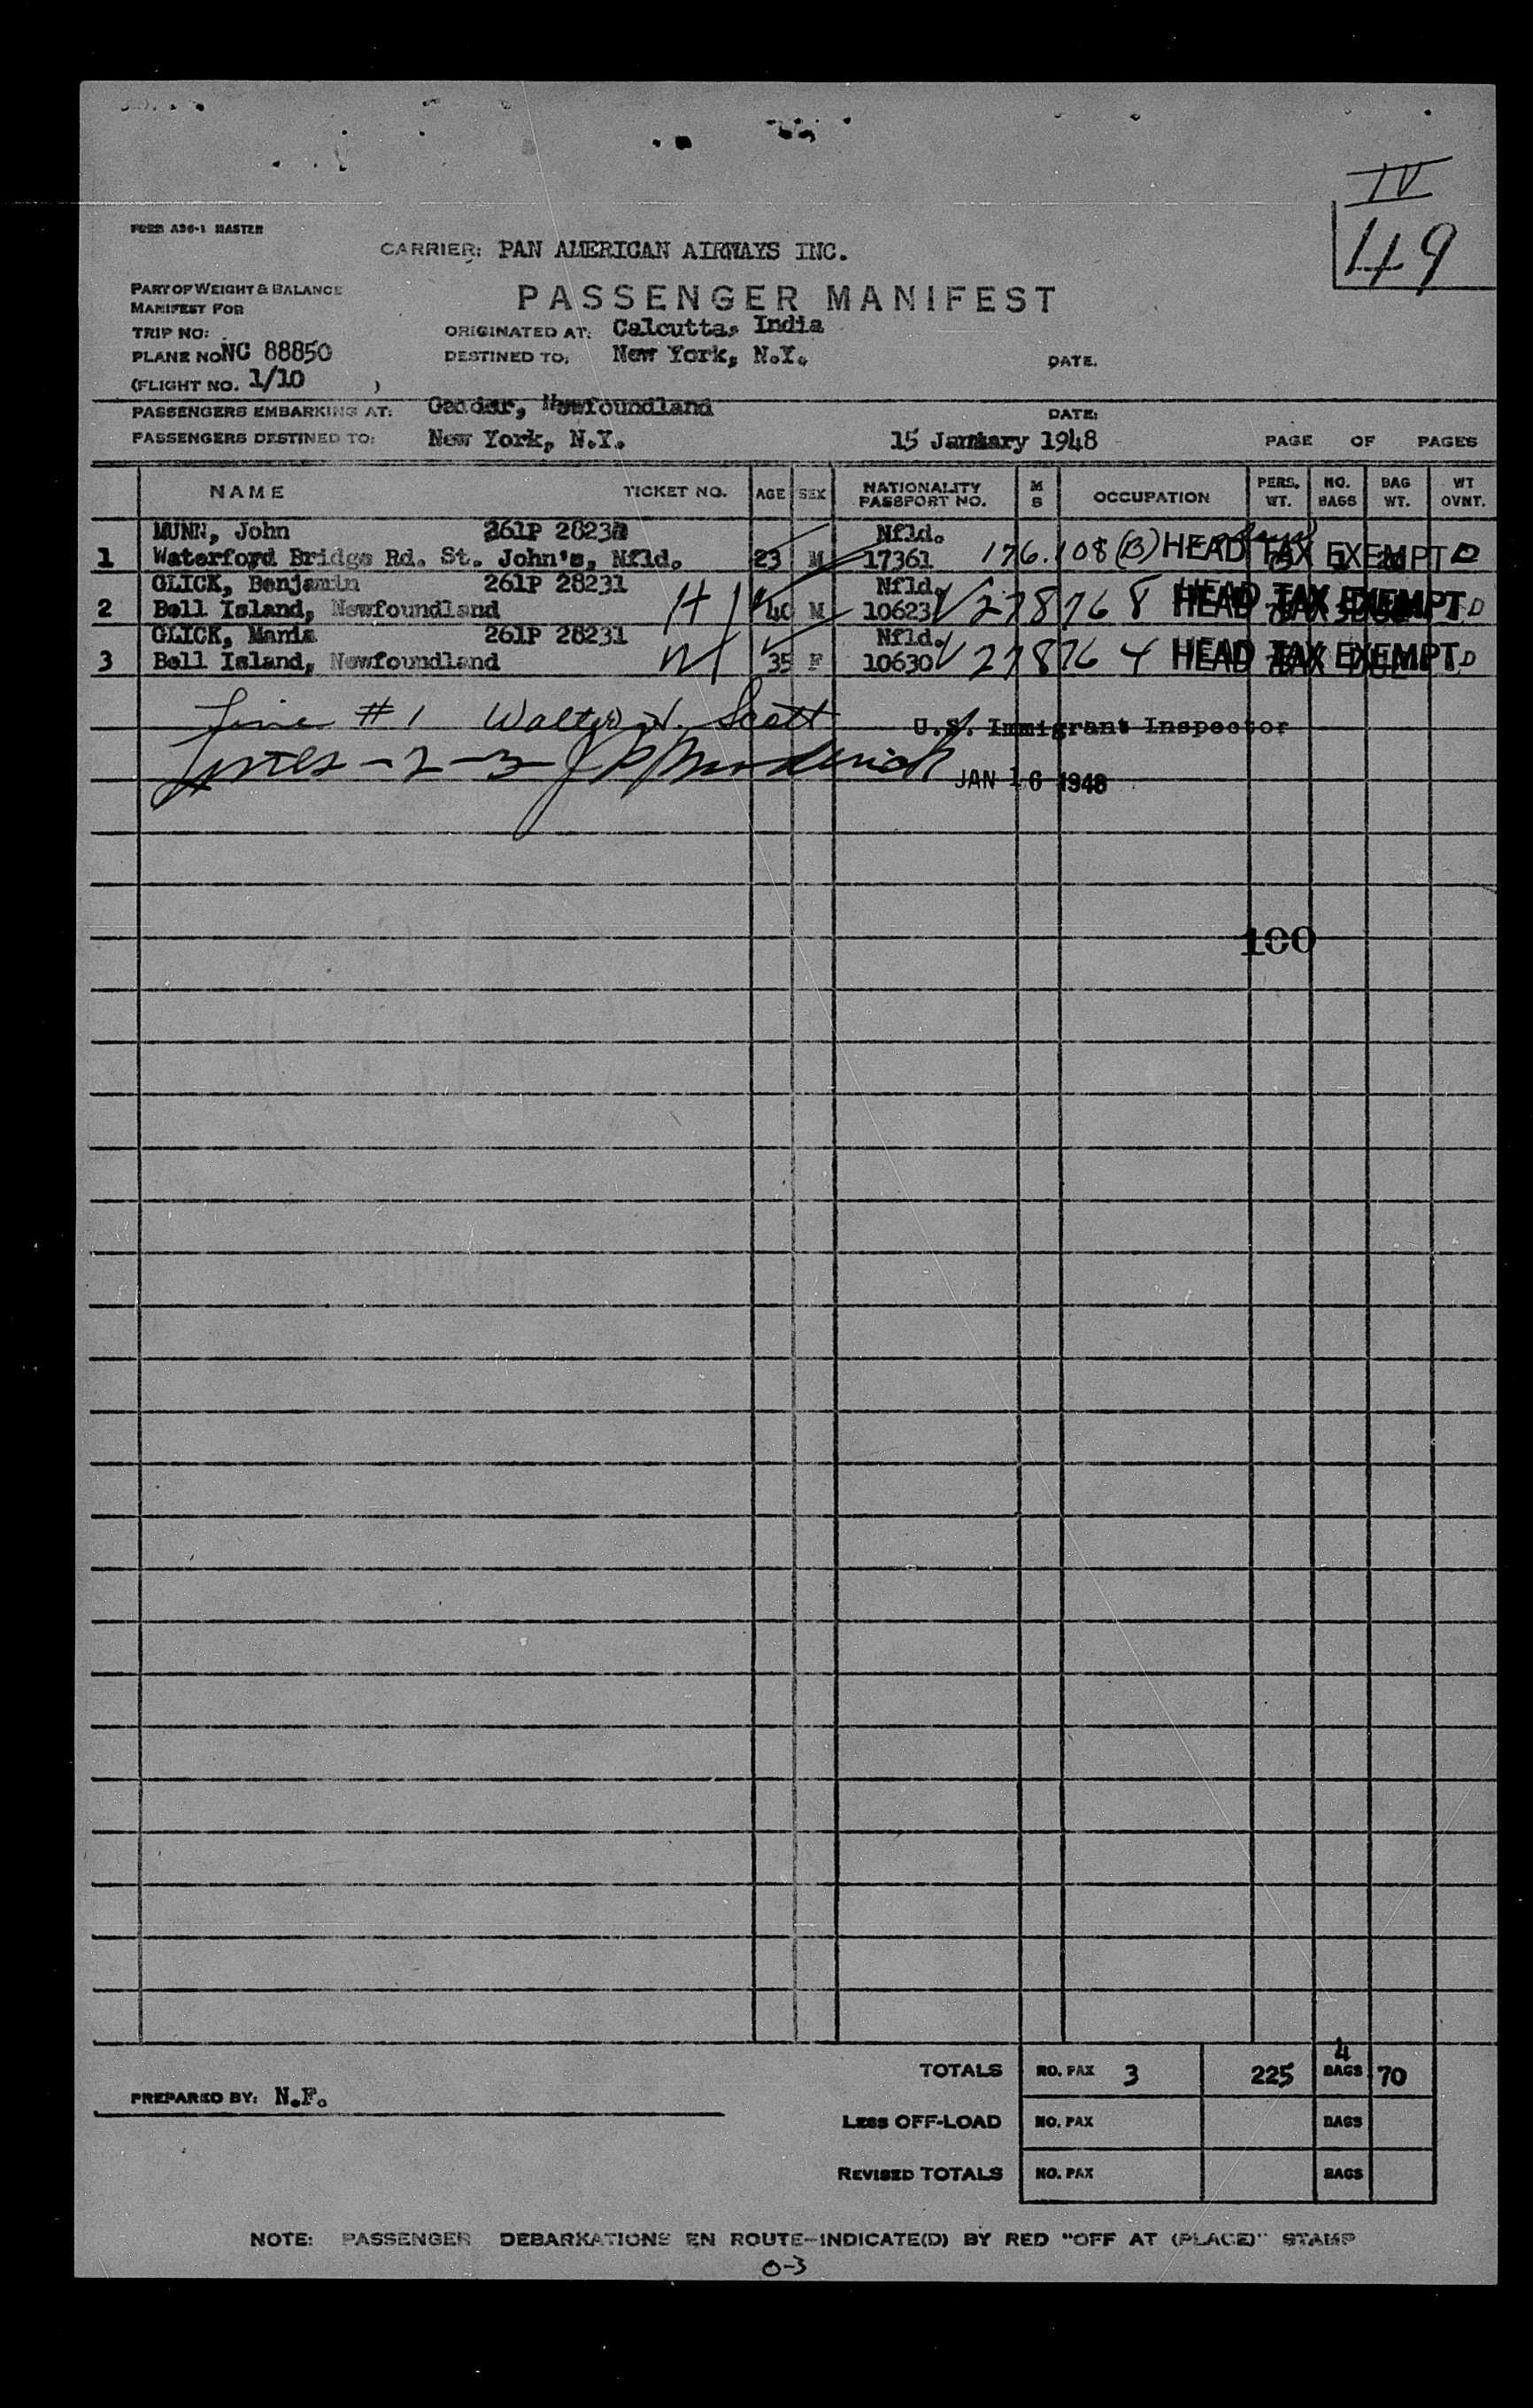 IV
49
FORM A36-1 MASTER
CARRIER: PAN AMERICAN AIRWAYS INC.
PART OF WEIGHT & BALANCE
MANIFEST FOR
PASSENGER MANIFEST
TRIP NO:
ORIGINATED AT: Calcutta, India
PLANE NO. NC 88850
DESTINED TO: New York, N.Y.
DATE.
(FLIGHT NO. 1/10 )
PASSENGERS EMBARKING AT: Gander, Newfoundland
DATE:
PASSENGERS DESTINED TO: New York, N.Y.
15 January 1948
PAGE OF PAGES
NAME TICKET NO. AGE SEX NATIONALITY PASSPORT NO. M S OCCUPATION PERS. WT. NO. BAGS BAG WT. WT OVNT.
MUNN, John 261P 2823 Nfld.
1 Waterford Bridge Rd. St. John's, Nfld. 23 M 17361 176.108 (B) HEAD TAX EXEMPT D
GLICK, Benjamin 261P 28231 Nfld.
2 Bell Island, Newfoundland H 40 M 10623 V 27876 8 HEAD TAX EXEMPT D
GLICK, Mania 261P 28231 Nfld.
3 Bell Island, Newfoundland W 35 F 10630 V 27876 4 HEAD TAX EXEMPT D
Line #1 Walter H. Scott U.S. Immigrant Inspector
Lines - 2 - 3
JAN 16 1948
100
TOTALS NO. PAX 3 225 4 BAGS 70
PREPARED BY: N.F.
LESS OFF-LOAD NO. PAX BAGS
REVISED TOTALS NO. PAX BAGS
NOTE: PASSENGER DEBARKATIONS EN ROUTE-INDICATE(D) BY RED "OFF AT (PLACE)" STAMP
0-3